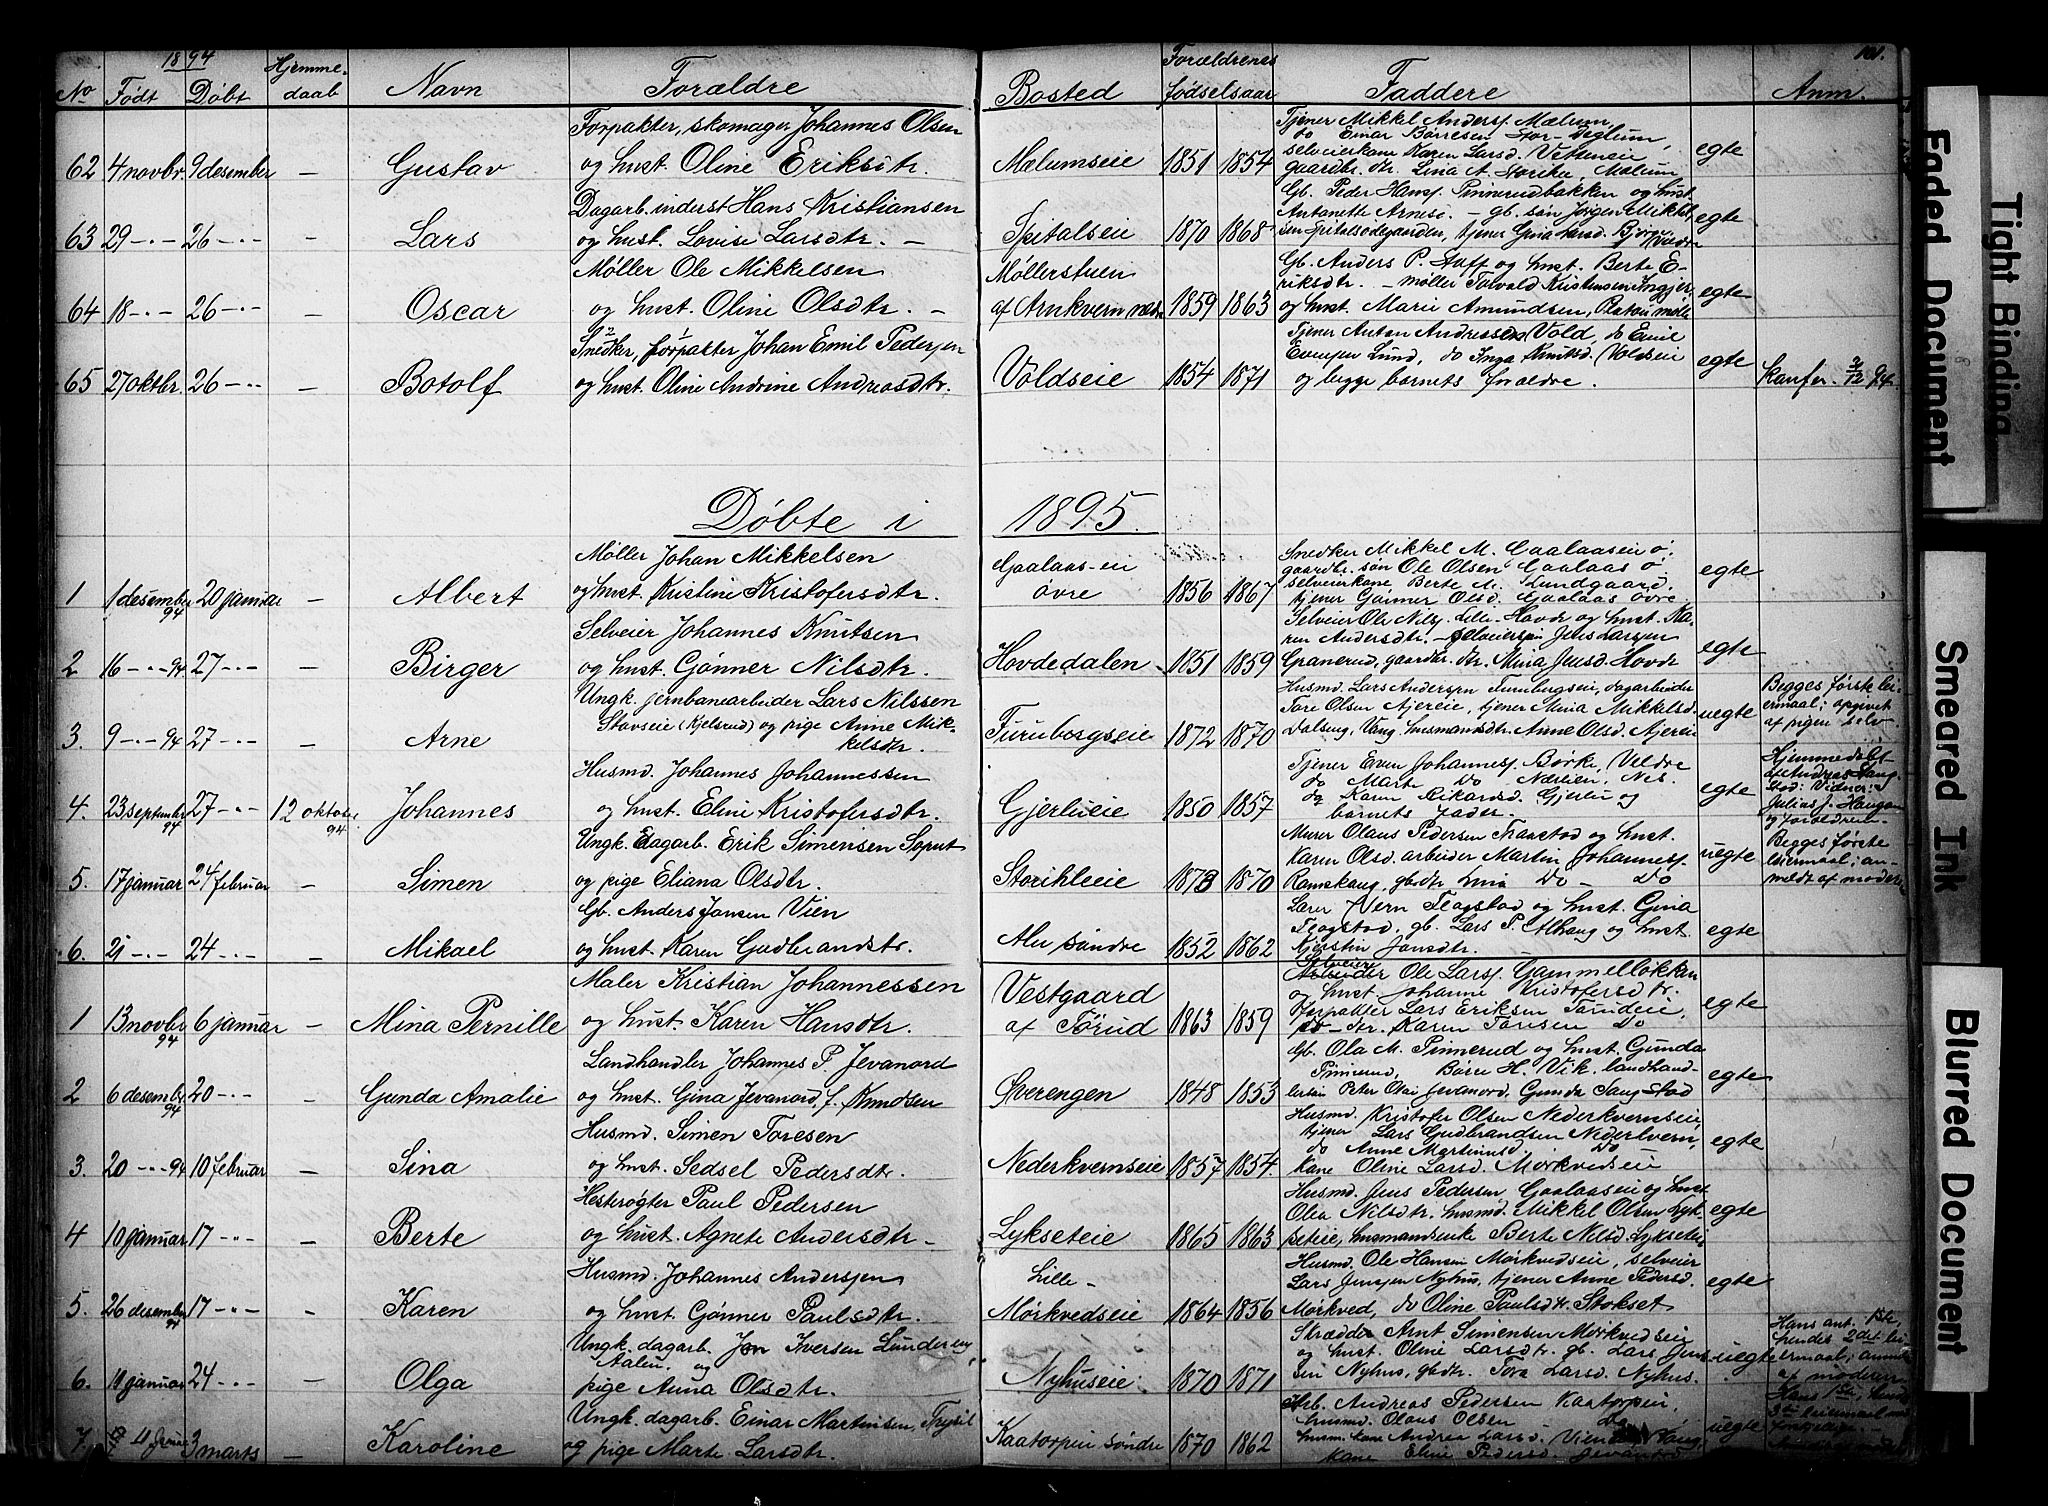 1894
101.
No Født Døbt Hjemmedaab Navn Forældre Bosted Forældrenes fødselsaar Faddere Anm.
62 4 novbr. 9 desember – Gustav
Forpakter, skomager Johannes Olsen
og hust. Oline Eriksdtr.
Mælumseie 1851 1854
Tjener Mikkel Andersj. Mælum
do Einar Børresen Stor-
selveierkone Karen Larsd.
gaardbr. dtr. Lina A. Mælum
egte
63 29 -"- 26 -"- – Lars
Dagarb. inderst Hans Kristiansen
og hust. Lovise Larsdtr. –
Spitalseie 1870 1868
Gb. Peder Hansj. Pinnerudbakken og hust.
Antonette Arnesd. – gb. søn Jørgen Mikkel-
sen Spitalsødegaarden, tjener Gina Larsd.
egte
64 18 -"- 26 -"- – Oscar
Møller Ole Mikkelsen
og hust. Oline Olsdtr. –
Møllerstuen
af Arnkvern
1859 1863
Gb. Anders P. og hust. Berte E-
riksdtr. – møller Torvald Kristiansen
og hust. Marie Amundsen,
egte
65 27 oktbr. 26 -"- – Botolf
Snedker, forpakter Johan Emil Pedersen
og hust. Oline Andrine Andreasdtr.
Voldseie 1854 1871
Tjener Anton Andreassen Vold, do Emil
Evensen Lund, do Inga Knutsd. Voldseie
og begge barnets forældre.
egte
Konfer. 94
Døbte i 1895.
1 1 desember 94 20 januar – Albert
Møller Johan Mikkelsen
og hust. Kristine Kristofersdtr.
Gaalaas-eie
øvre
1856 1867
Snedker Mikkel M. Gaalaaseie ø.
gaardbr. søn Ole Olsen Gaalaas ø.
selveierkone Berte M. Lundgaard,
tjener Gønner Olsd. Gaalaas øvre.
egte
2 16 -"- 94 27 -"- – Birger
Selveier Johannes Knutsen
og hust. Gønner Nilsdtr.
Hovdedalen 1851 1859
Selveier Ole Nilsj. Lille-Hovde og hust. Ka-
ren Andersdtr. – selveiersøn Jens Larsen
Granerud, gaardbr. dtr. Mina Jensd. Hovde
egte
3. 9 -"- 94 27 -"- – Arne
Ungk. jernbanearbeider Lars Nilssen
Stavseie (Kjelsrud) og pige Anne Mik-
kelsdtr.
Furubergseie 1872 1870
Husmd. Lars Andersen Furubergseie, dagarbeider
Tore Olsen Ajereie, tjener Mina Mikkelsd.
Dalseng, Vang, husmandsdtr. Anne Olsd. Ajereie
uegte
Begges første lei-
ermaal; opgivet
af pigen selv
4. 23 september 94 27 -"- 12 oktober 94 Johannes
Husmd. Johannes Johannessen
og hust. Eline Kristofersdtr.
Gjerlueie 1850 1857
Tjener Even Johannesj. Børke, Veldre
do Marte Do Næslien, Nes.
do Karen Rikardsd. Gjerlu og
barnets fader.
egte
Hjemmedøbt
af Andreas Saug-
stad; Vidner:
Julius J. Haugen
og forældrene.
5. 17 januar 24 februar – Simen
Ungk. dagarb. Erik Simensen Soprut
og pige Eliana Olsdtr.
Storihleeie 1873 1870
Murer Olaus Pedersen og hust.
Karen Olsd. arbeider Martin Johannesj.
Ramskaug, gbdtr. Lina Do – Do
uegte
Begges første
leiermaal; an-
meldt af moderen
6. 21 -"- 24 -"- – Mikael
Gb. Anders Jansen Vien
og hust. Karen Gudbrandsdtr.
Alu søndre 1852 1862
Lærer Vern Flagstad og hust. Gina
Flagstad, gb. Lars P. Alhaug og hust.
Kjerstin Jansdtr.
egte
1 13 novbr 94 6 januar – Mina Pernille
Maler Kristian Johannessen
og hust. Karen Hansdtr.
Vestgaard
af Tørud
1863 1859
Selveier
Arbeider Ole Larsj. Gammelløkken
og hust. Johanne Kristofersdtr.
Forpakter Lars Eriksen Tørudeie,
do – dtr. Karen Toresen Do
egte
2 6 desember 94 20 -"- – Gunda Amalie
Landhandler Johannes P. Jevanord
og hust. Gina Jevanord, f. Knudsen
Sverengen 1848 1853
Gb. Ola M. Pinnerud og hust. Gunda
Pinnerud, Børre H. Vik, landhand-
lersøn Peter Olai Jevanord, Gunda Saugstad
egte
3. 20 -"- 94 10 februar – Sina
Husmd. Simen Toresen
og hust. Sedsel Pedersdtr.
Nederkvernseie 1857 1854.
Husmd. Kristofer Olsen Nederkvernseie,
tjener Lars Gudbrandsen Nederkvern,
do Anne Martinusd. Do
Kone Oline Larsd. Mørkvedseie
egte
4 10 januar 17 -"- – Berte
Hesterøgter Paul Pedersen
og hust. Agnete Andersdtr. –
Lykseteie 1865 1863
Husmd. Jens Pedersen Gaalaaseie og hust.
Olea Nilsdtr. husmd. Mikkel Olsen Lyk-
seteie, husmandsenke Berte Nilsd. Lykseteie
egte
5. 26 desember 94 17 -"- – Karen
Husmd. Johannes Andersjen
og hust. Gønner Paulsdtr.
Lille-
Mørkvedseie 1864 1856
Husmd. Ole Hansen Mørkvedseie, selveier
Lars Jensjen Nyhus, tjener Anne Pedersd.
Mørkved, do Oline Paulsdtr. Stokset
egte
6. 11 januar 24 -"- – Olga
Ungk. dagarb. Jon Iversen Lundereng,
Aalen og
pige Anna Olsdtr.
Nyhuseie 1870 1871
Skrædder Arnt Simensen Mørkvedseie
og hust. Oline Larsdtr. gb. Lars Jens-
sen Nyhus, gbdtr. Tora Larsd. Nyhus.
uegte
Hans ant. 1ste,
hendes 2det lei-
ermaal; anmeldt
af moderen
7. 11 3 marts – Karoline
Ungk. dagarb. Einar Martinsen, Trysil
og pige Marte Larsdtr.
Kaatorpen søndre 1870 1862
Arb. Andreas Pedersen Kaatorpen,
husmd. Olaus Olsen Do
husm. kone Andrea Larsd.
Kone Eline Pedersd.
uegte
Hans 1ste,
3die leiermaal
Tight Binding
Faded Document
Smeared Ink
Blurred Document